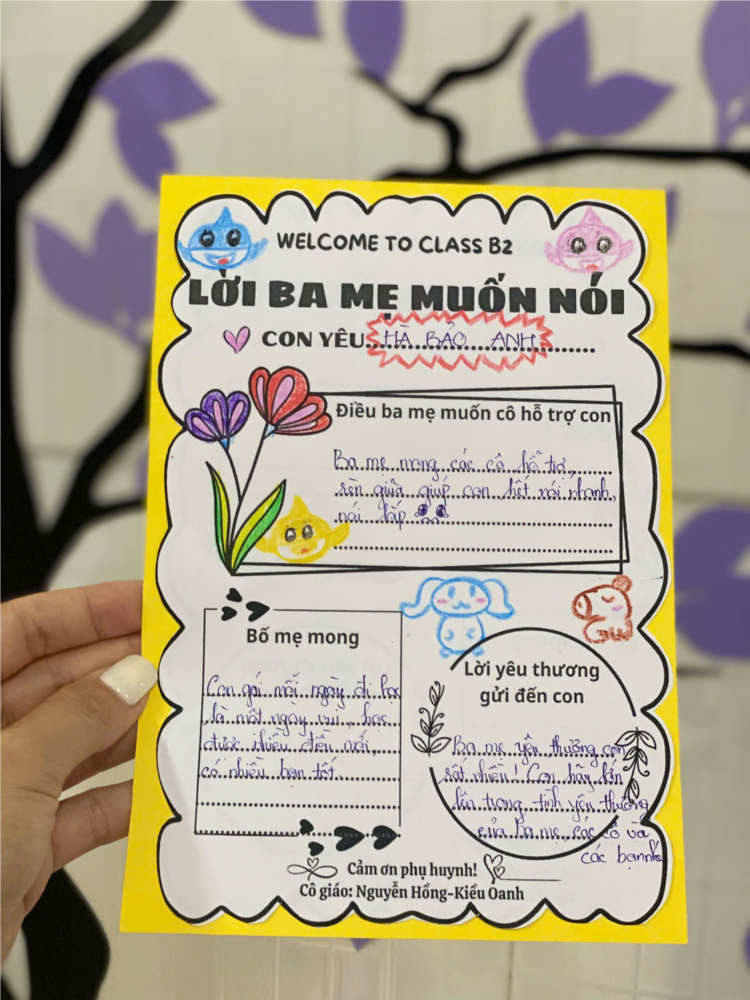 WELCOME TO CLASS B2
LỜI BA MẸ MUỐN NÓI
CON YÊU HÀ BẢO ANH
Điều ba mẹ muốn cô hỗ trợ con
Ba mẹ mong các cô hỗ trợ
rèn giũa giúp con hết nói nhanh,
nói lắp
Bố mẹ mong
Con gái mỗi ngày đi học
là một ngày vui, học
được nhiều điều mới,
có nhiều bạn tốt
Lời yêu thương
gửi đến con
Ba mẹ yêu thương con
rất nhiều! Con hãy lớn
lên trong tình yêu thương
của Ba mẹ, các cô và
các bạn nhé
Cảm ơn phụ huynh!
Cô giáo: Nguyễn Hồng-Kiều Oanh